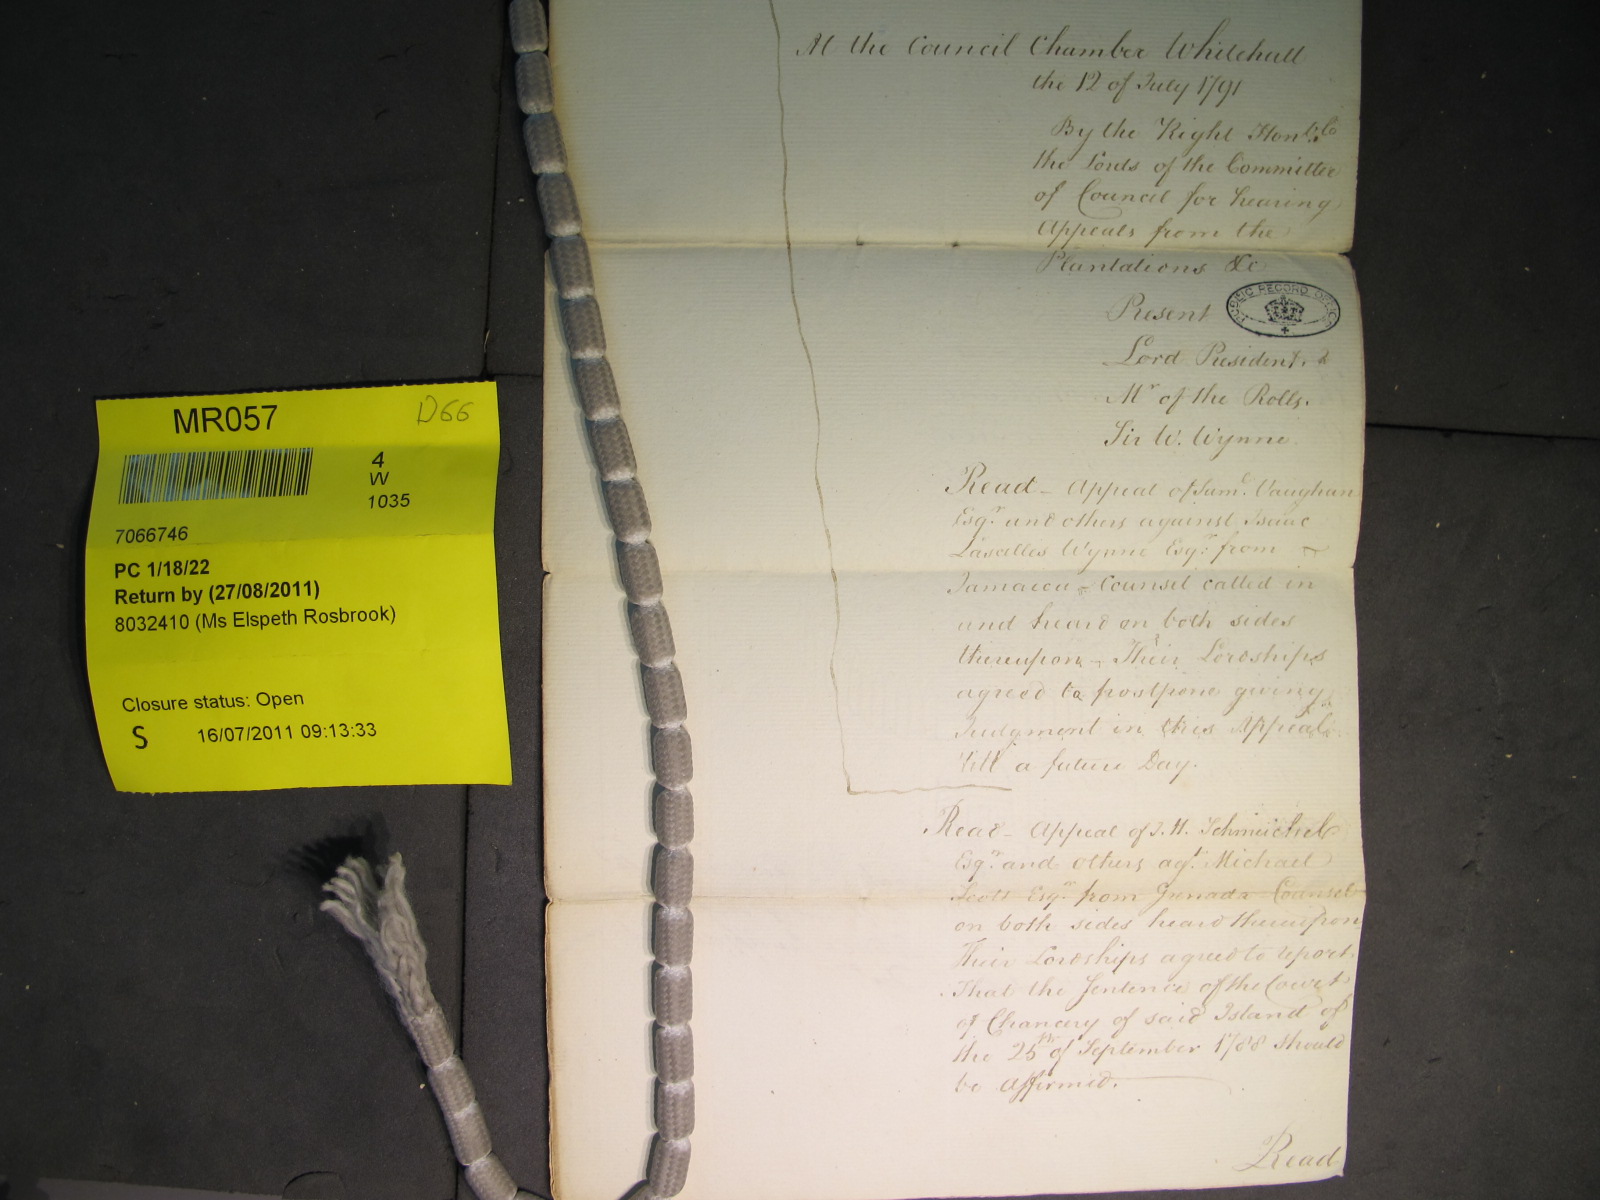 At the Council Chamber Whitehall
the 12 of July 1791
By the Right Honble
the Lords of the Committee
of Council for hearing
Appeals from the
Plantations &c
Present
PUBLIC RECORD OFFICE
Lord President.
Mr of the Rolls.
Sir W. Wynne
Read - Appeal of Saml. Vaughan
Esqr. and others against Isaac
Lascelles Wynne Esqr. from
Jamaica - Counsel called in
and heard on both sides
thereupon - Their Lordships
agreed to postpone giving
Judgment in this Appeal
till a future Day.
Read - Appeal of J. H. Schmeichel
Esqr. and others agt. Michael
Scott Esqr. from Grenada Counsel
on both sides heard thereupon
Their Lordships agreed to report
That the Sentence of the Court
of Chancery of said Island of
the 25th of September 1788 should
be affirmed.
Read
MR057
D66
4
W
1035
7066746
PC 1/18/22
Return by (27/08/2011)
8032410 (Ms Elspeth Rosbrook)
Closure status: Open
S 16/07/2011 09:13:33